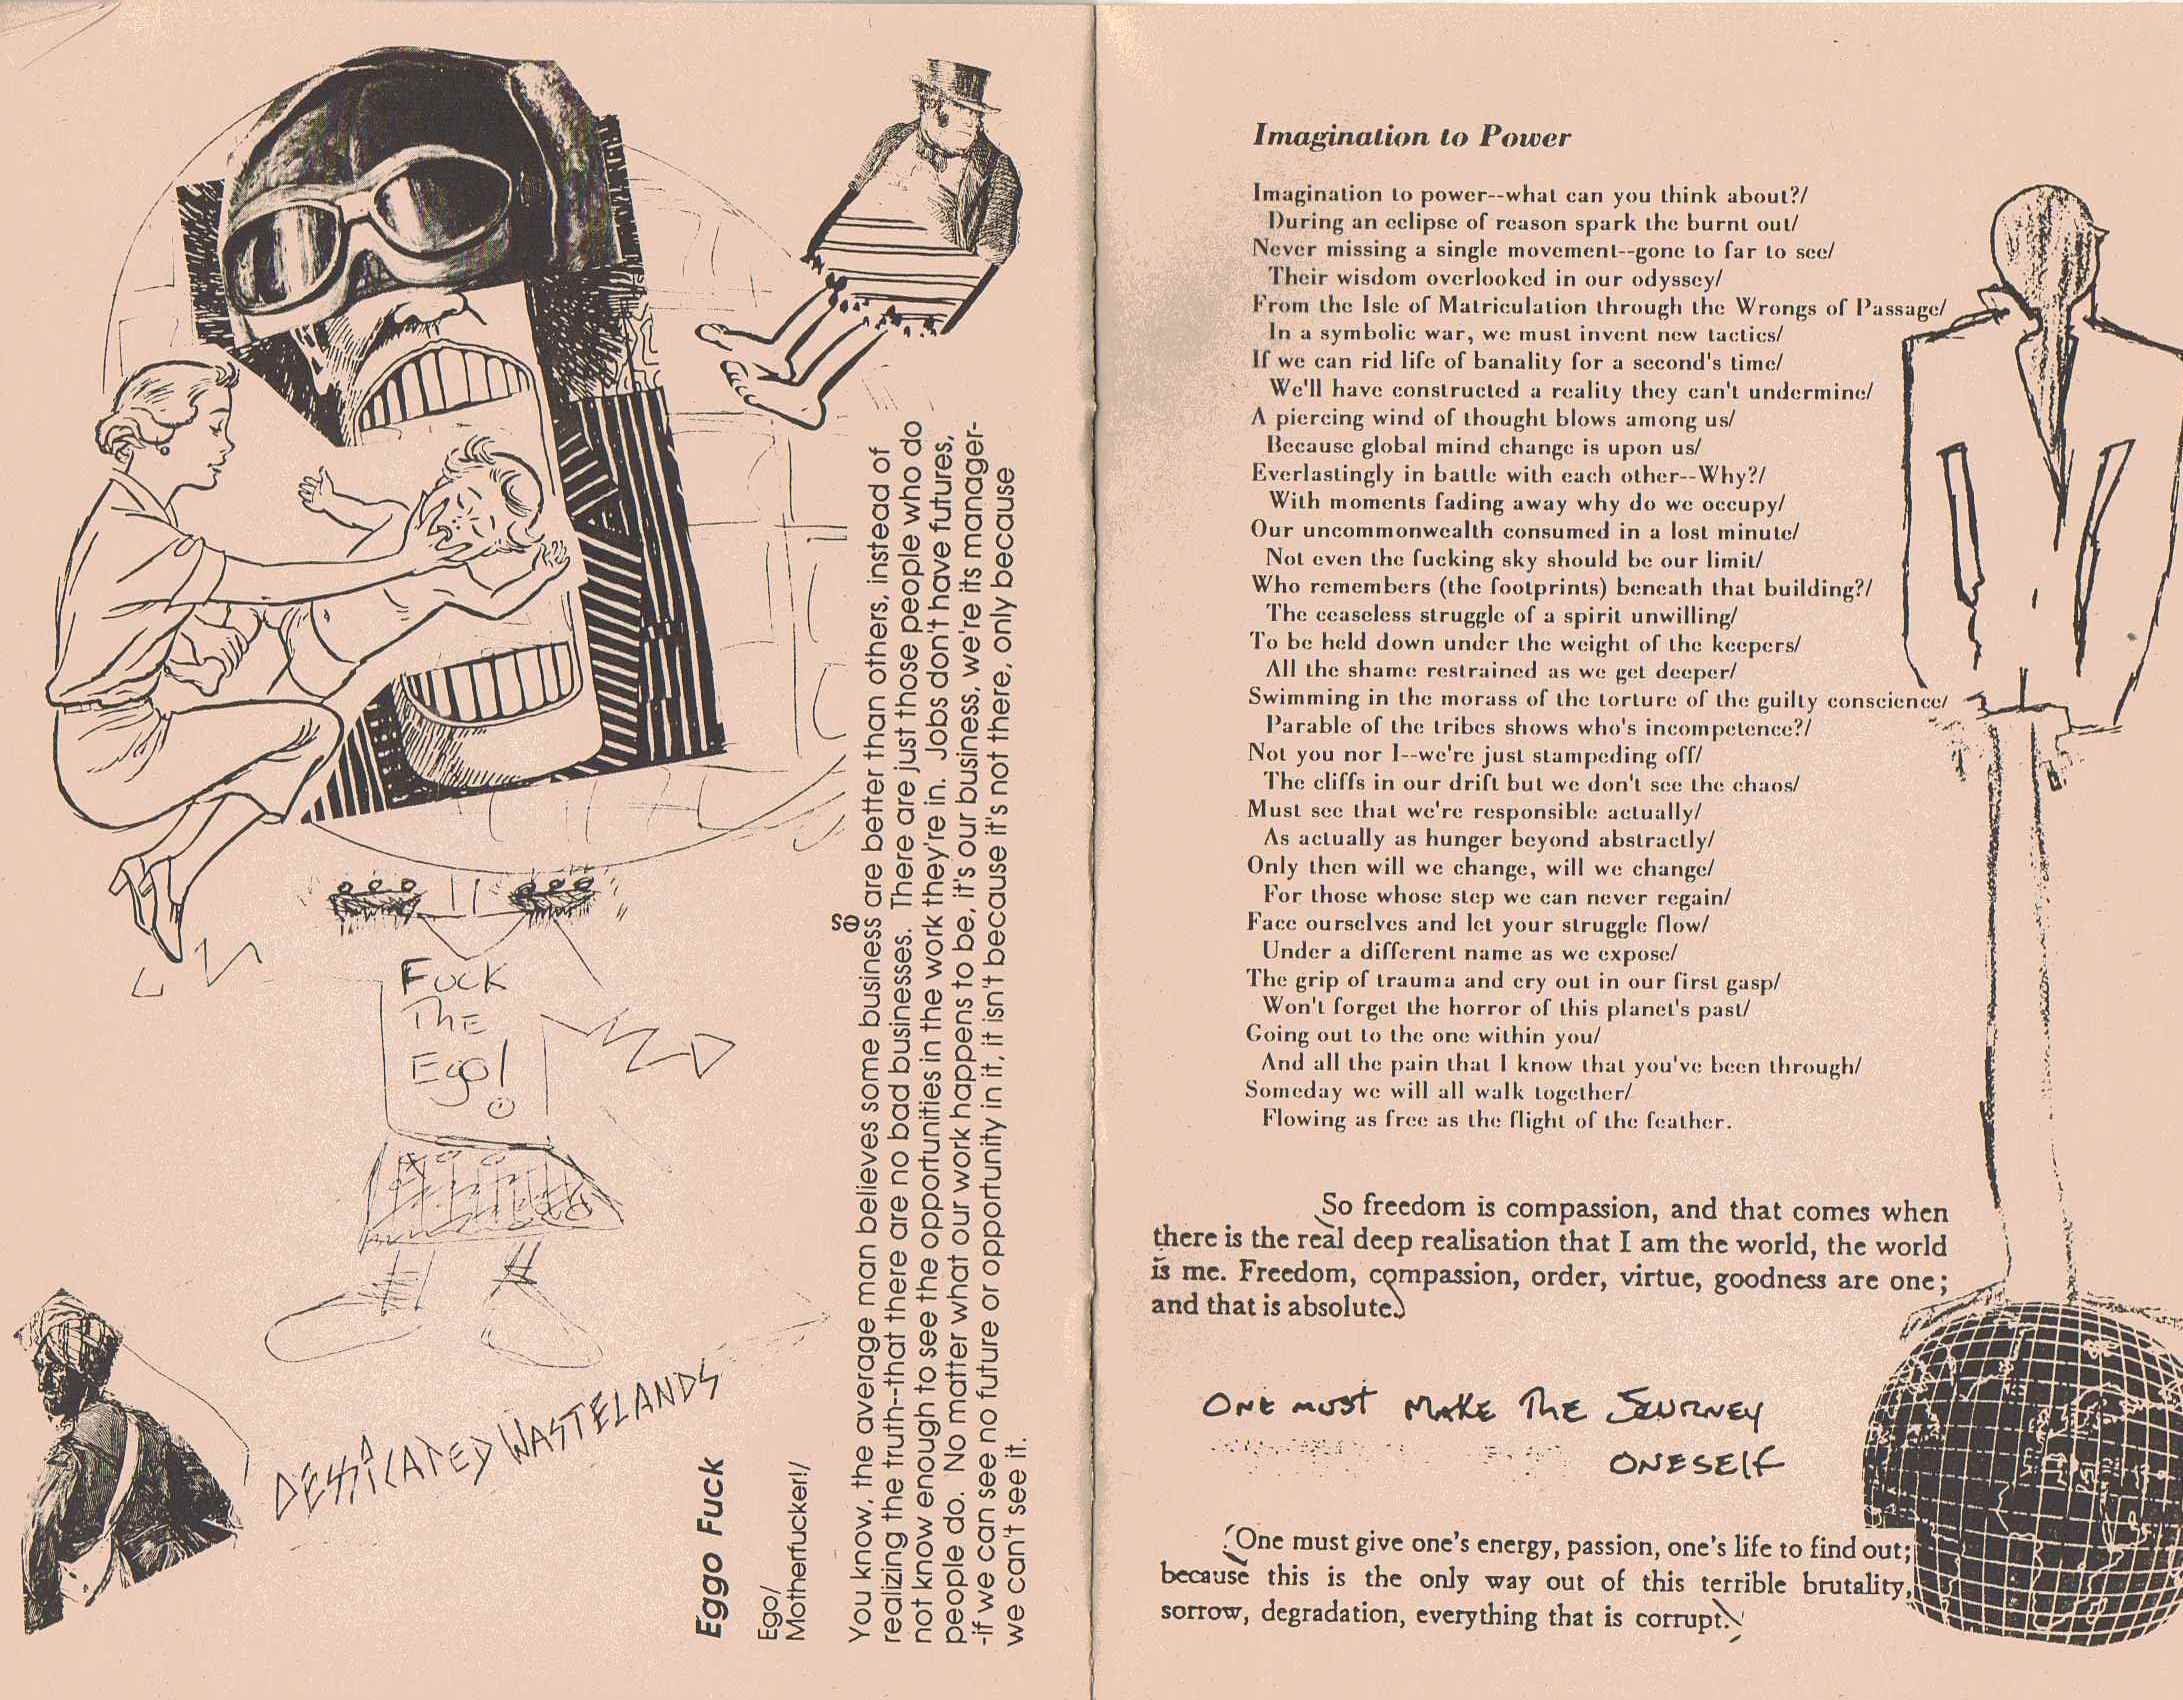 FUCK
THE
EgO!
DESSICATED WASTELANDS
Eggo Fuck
Ego/
Motherfucker!/
You know, the average man believes some businesses are better than others, instead of
realizing the truth--that there are no bad businesses.  There are just those people who do
not know enough to see the opportunities in the work they're in.  Jobs don't have futures,
people do.  No matter what our work happens to be, it's our business, we're its manager-
-if we can see no future or opportunity in it, it isn't because it's not there, only because
we can't see it.
Imagination to Power
Imagination to power--what can you think about?/
During an eclipse of reason spark the burnt out/
Never missing a single movement--gone to far to see/
Their wisdom overlooked in our odyssey/
From the Isle of Matriculation through the Wrongs of Passage/
In a symbolic war, we must invent new tactics/
If we can rid life of banality for a second's time/
We'll have constructed a reality they can't undermine/
A piercing wind of thought blows among us/
Because global mind change is upon us/
Everlastingly in battle with each other--Why?/
With moments fading away why do we occupy/
Our uncommonwealth consumed in a lost minute/
Not even the fucking sky should be our limit/
Who remembers (the footprints) beneath that building?/
The ceaseless struggle of a spirit unwilling/
To be held down under the weight of the keepers/
All the shame restrained as we get deeper/
Swimming in the morass of the torture of the guilty conscience/
Parable of the tribes shows who's incompetence?/
Not you nor I--we're just stampeding off/
The cliffs in our drift but we don't see the chaos/
Must see that we're responsible actually/
As actually as hunger beyond abstractly/
Only then will we change, will we change/
For those whose step we can never regain/
Face ourselves and let your struggle flow/
Under a different name as we expose/
The grip of trauma and cry out in our first gasp/
Won't forget the horror of this planet's past/
Going out to the one within you/
And all the pain that I know that you've been through/
Someday we will all walk together/
Flowing as free as the flight of the feather.
So freedom is compassion, and that comes when
there is the real deep realisation that I am the world, the world
is me. Freedom, compassion, order, virtue, goodness are one;
and that is absolute.
ONE MUST MAKE THE JOURNEY
ONESELF
One must give one's energy, passion, one's life to find out;
because this is the only way out of this terrible brutality,
sorrow, degradation, everything that is corrupt.